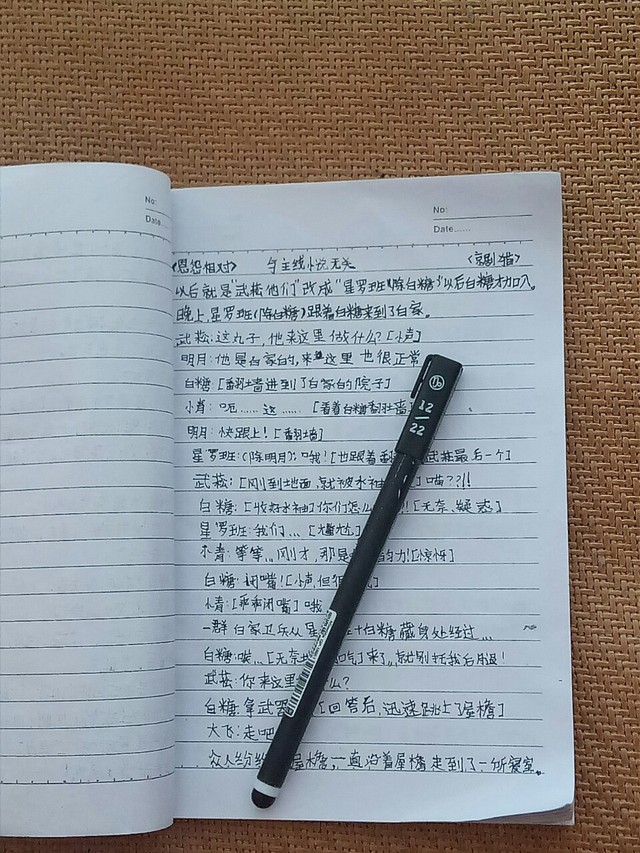 No:
Date
No:
Date......
《恩怨相对》 与主线小说无关 (京剧猫)
以后就是"武崧他们"改成"星罗班(除白糖)"以后白糖才加入。
晚上,星罗班(除白糖)跟着白糖来到了白家。
武崧:这丸子,他来这里做什么?[小声]
明月:他是白家的,来这里也很正常
白糖:[翻墙进到了白家的院子]
小青:呃……这……[看着白糖翻墙
明月:快跟上![翻墙]
星罗班:(除明月):哦![也跟着 武崧最后一个]
武崧:[刚到地面,就被水袖 ]喵??!!
白糖:[收好水袖]你们怎么 ![无奈、疑惑]
星罗班:我们…[尴尬]
小青:等等…刚才,那是 的力![惊讶]
白糖:闭嘴![小声但很 ]
小青:[乖乖闭嘴]哦
一群白家卫兵从星 +白糖藏身处经过…
白糖:唉…[无奈 口气]来了,就别拖我后腿!
武崧:你来这里 什么?
白糖:拿武器 [回答后,迅速跳上了屋檐]
大飞:走吧
众人纷纷 屋檐,一直沿着屋檐走到了一所寝室。
12
22